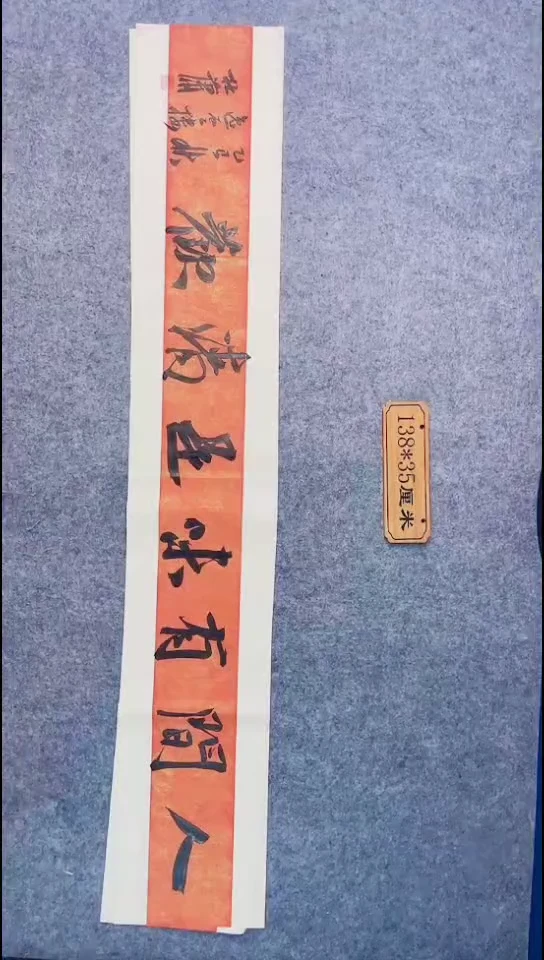 人間有味是清歡
乙巳秋
138*35厘米